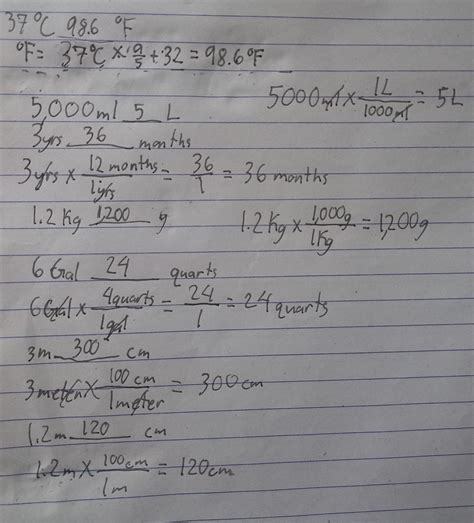 37°C 98.6 °F
°F = 37°C × 9/5 + 32 = 98.6°F
5,000ml 5 L
5000ml × 1L/1000ml = 5L
3yrs 36 months
3yrs × 12 months/1yrs = 36/1 = 36 months
1.2 Kg 1,200 g
1.2Kg × 1,000g/1Kg = 1,200g
6 Gal 24 quarts
6Gal × 4quarts/1gal = 24/1 = 24 quarts
3m 300 cm
3meter × 100 cm/1meter = 300cm
1.2m 120 cm
1.2m × 100cm/1m = 120cm